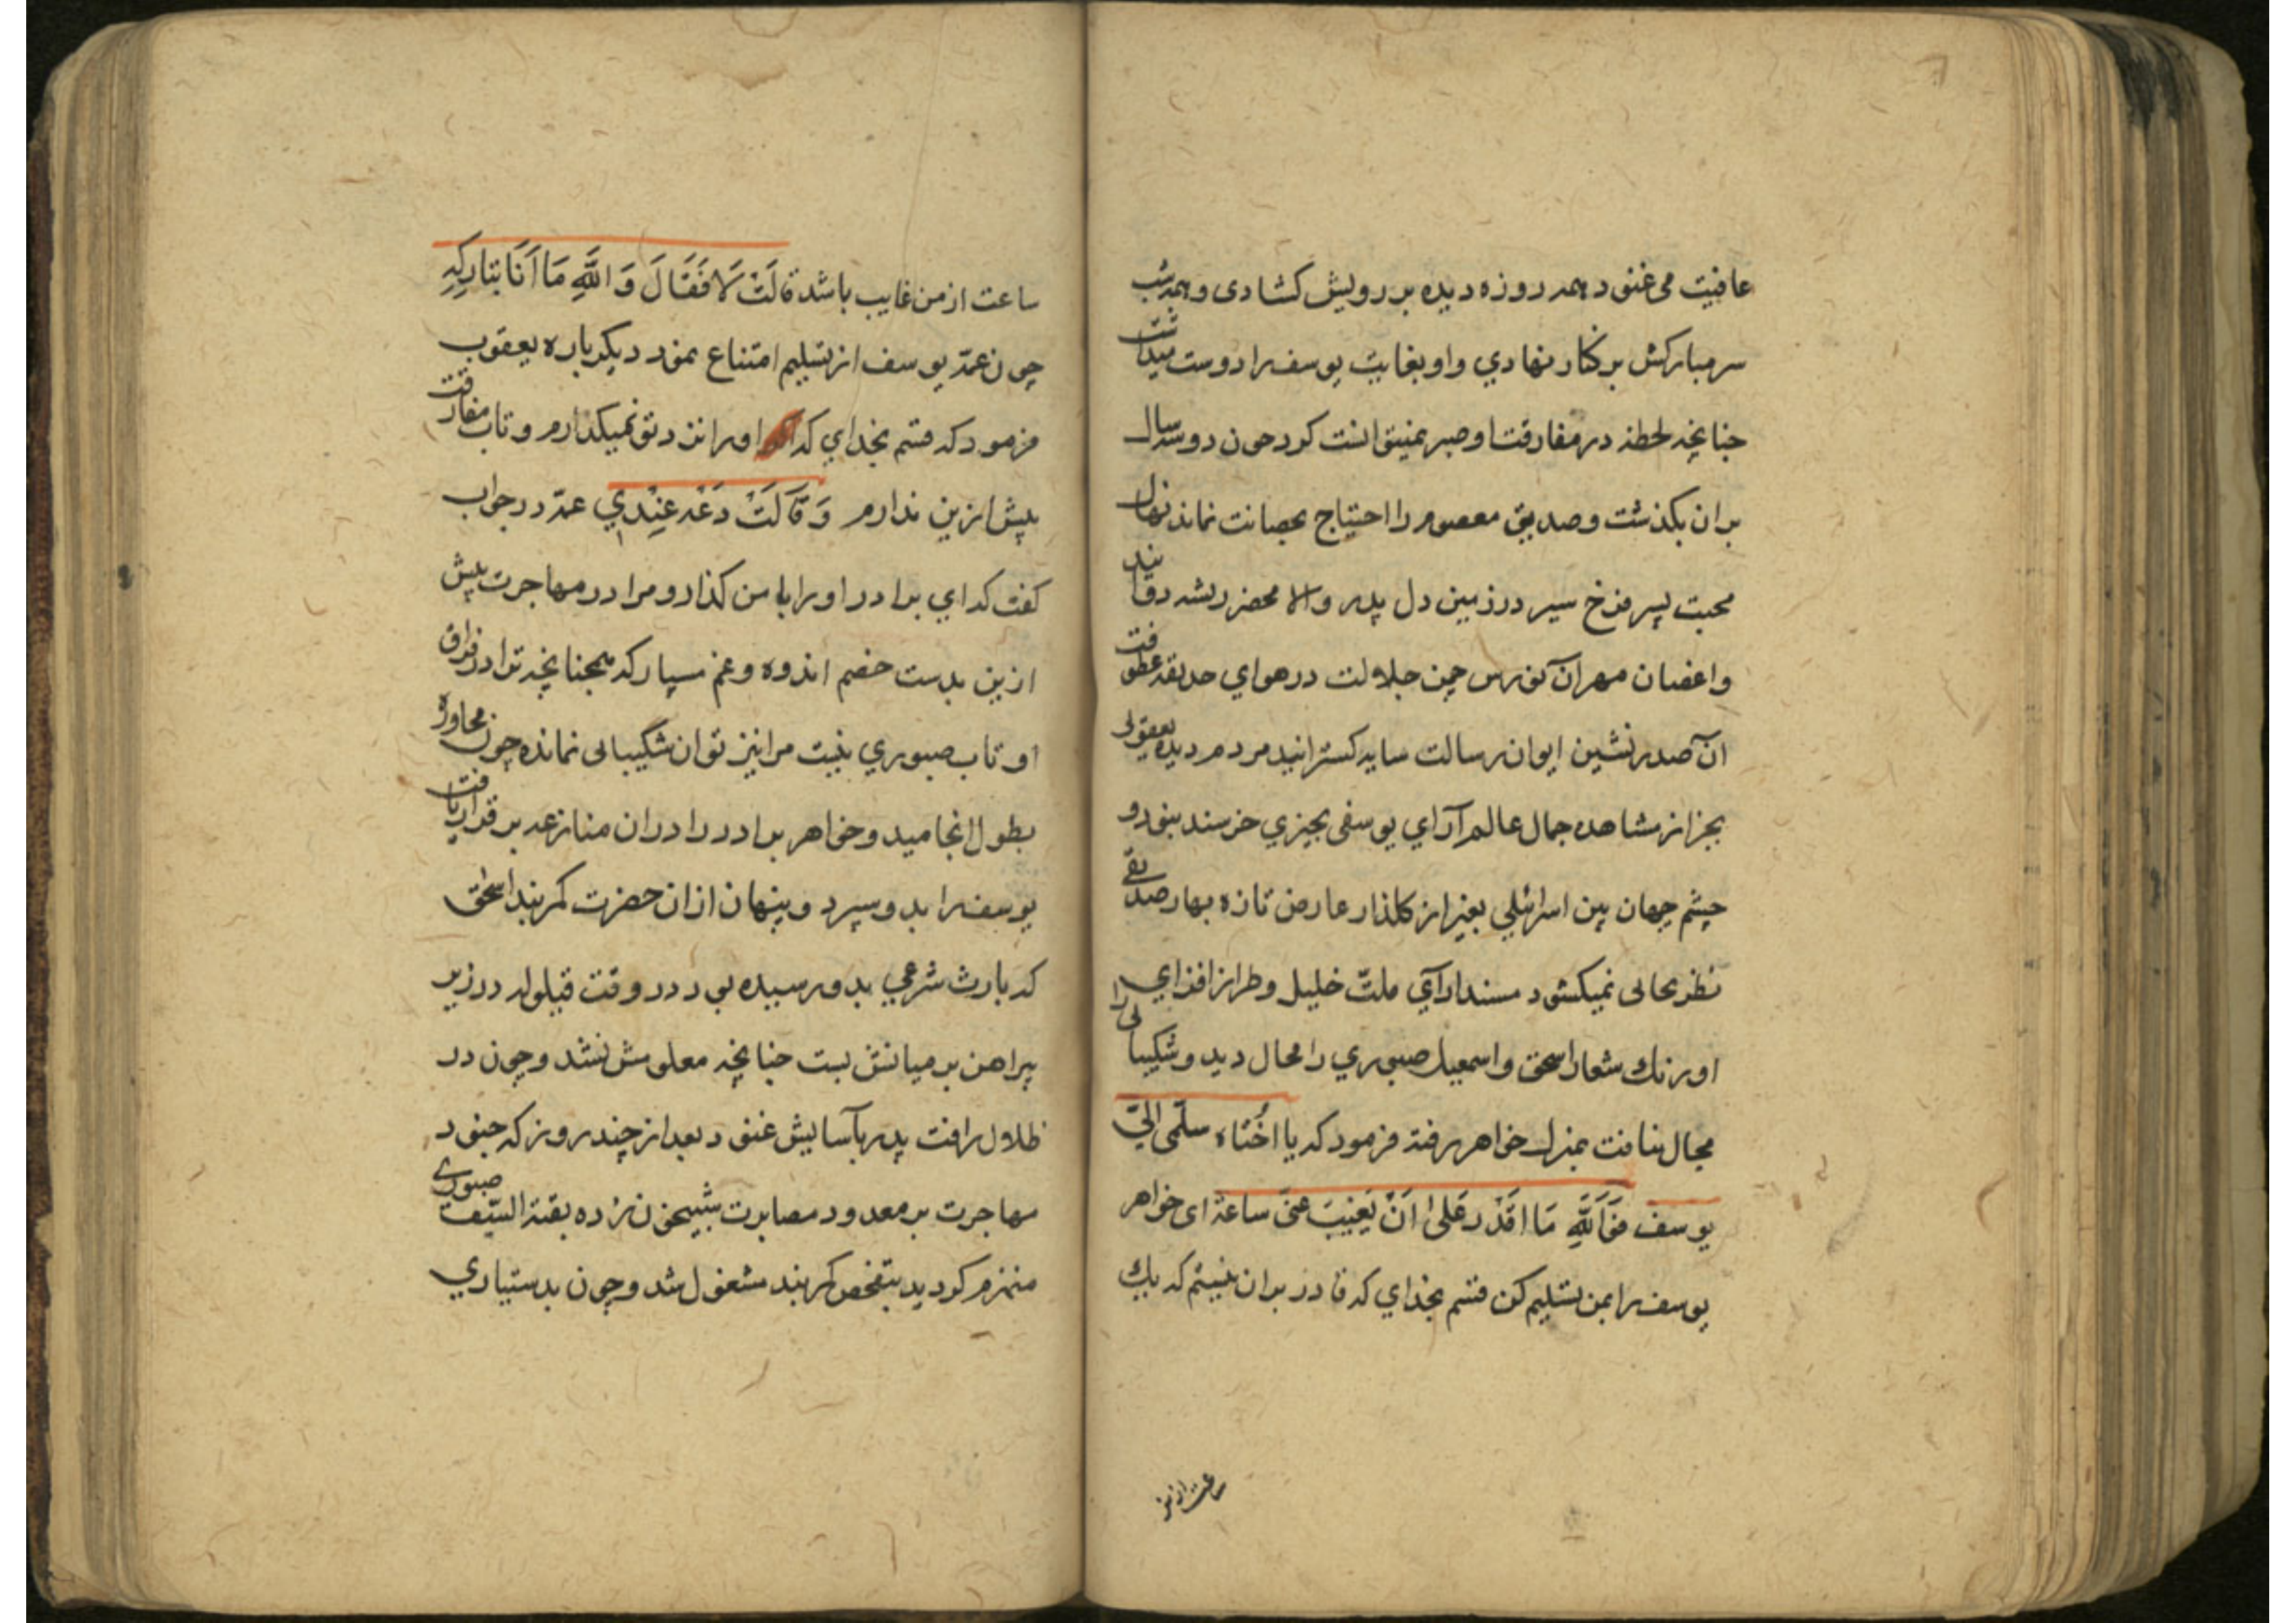 عافیت می غنود همه روزه دیده بر رویش کشادی و همه شب
سر مبارکش بر کنار نهادي و او بغایت یوسف را دوست میداشت
چنانچه لحظهٔ در مفارقت او صبر نمیتوانست کرد چون دو سه سال
بران بکذشت و صدیق معصوم را احتیاج بحضانت نماند نهال
محبت پسر فرخ سیر در زمین دل پدر والا محضر ریشه دوانید
و اغصان مهر آن نورس چمن جلالت در هواي حدیقه عطوفت
آن صدرنشین ایوان رسالت سایه کسترانید مردم دیده یعقوبی
بجز از مشاهده جمال عالم آراي یوسفی بچیزي خرسند نبود و
چشم جهان بین اسرائیلي بغیر از کلذار عارض تازه بهار صدیقی
نظر بحالی نمیکشود مسند آرآي ملت خلیل و طراز افزاي
اورنك شعار اسحق و اسمعیل صبوري را محال دید و شکیبائی را
مجال نیافت بمنزل خواهر رفته فرمود که یا اختاه سلمی الیّ
یوسف فوالله ما اقدر علی ان یغیب عنی ساعة ای خواهر
یوسف را بمن تسلیم کن قسم بخداي که قادر بران نیستم که یك
ساعت از من
ساعت از من غایب باشد قالت لا فقال والله ما انا بتارکه
چون عمهٔ یوسف از تسلیم امتناع نمود دیکر باره یعقوب
فرمود که قسم بخداي که او را نزد تو نمیکذارم و تاب مفارقت
پیش ازین ندارم و قالت دعه عندي عمه در جواب
کفت که اي برادر او را با من کذار و مرا در مهاجرت پیش
ازین بدست خصم اندوه و غم مسپار که همچنانچه ترا در فراق
او تاب صبوري نیست مرا نیز توان شکیبائی نمانده چون محاوره
بطول انجامید و خواهر برادر را در ان منازعه بر قرار یافت
یوسف را بدو سپرد و پنهان از ان حضرت کمربند اسحق
که بارث شرعي بدو رسیده بود در وقت قیلوله در زیر
پیراهن بر میانش بست چنانچه معلومش نشد و چون در
ظلال رافت پدر بآسایش غنود بعد از چند روز که جنود
مهاجرت بر معدود مصابرت شبیخون زده بقیة السیف صبوری
منهزم کردید بتفحص کمربند مشغول شد و چون بدستیاري